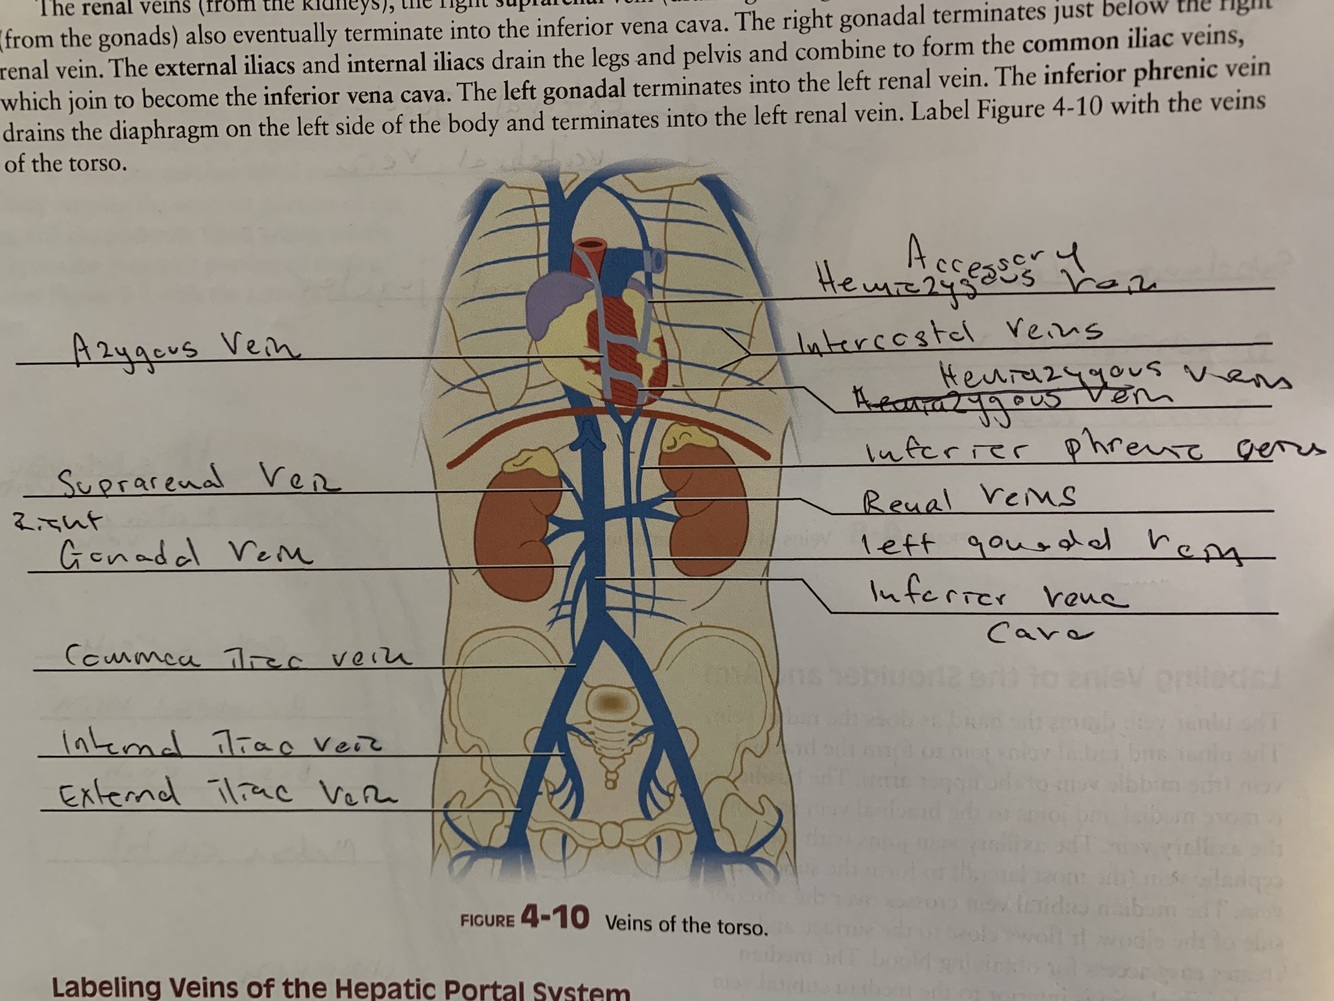 The renal veins (from the kidneys), the right suprarenal vein
(from the gonads) also eventually terminate into the inferior vena cava. The right gonadal terminates just below the right
renal vein. The external iliacs and internal iliacs drain the legs and pelvis and combine to form the common iliac veins,
which join to become the inferior vena cava. The left gonadal terminates into the left renal vein. The inferior phrenic vein
drains the diaphragm on the left side of the body and terminates into the left renal vein. Label Figure 4-10 with the veins
of the torso.
Accessory
Hemiazygous Vein
Azygous Vein
Intercostal Veins
Hemiazygous Veins
Hemiazygous Vein
Inferior phrenic veins
Suprarenal Vein
Renal Veins
Right
Gonadal Vein
left gonadal Vein
Inferior vena
Cava
Common iliac vein
Internal iliac vein
External iliac Vein
FIGURE 4-10 Veins of the torso.
Labeling Veins of the Hepatic Portal System